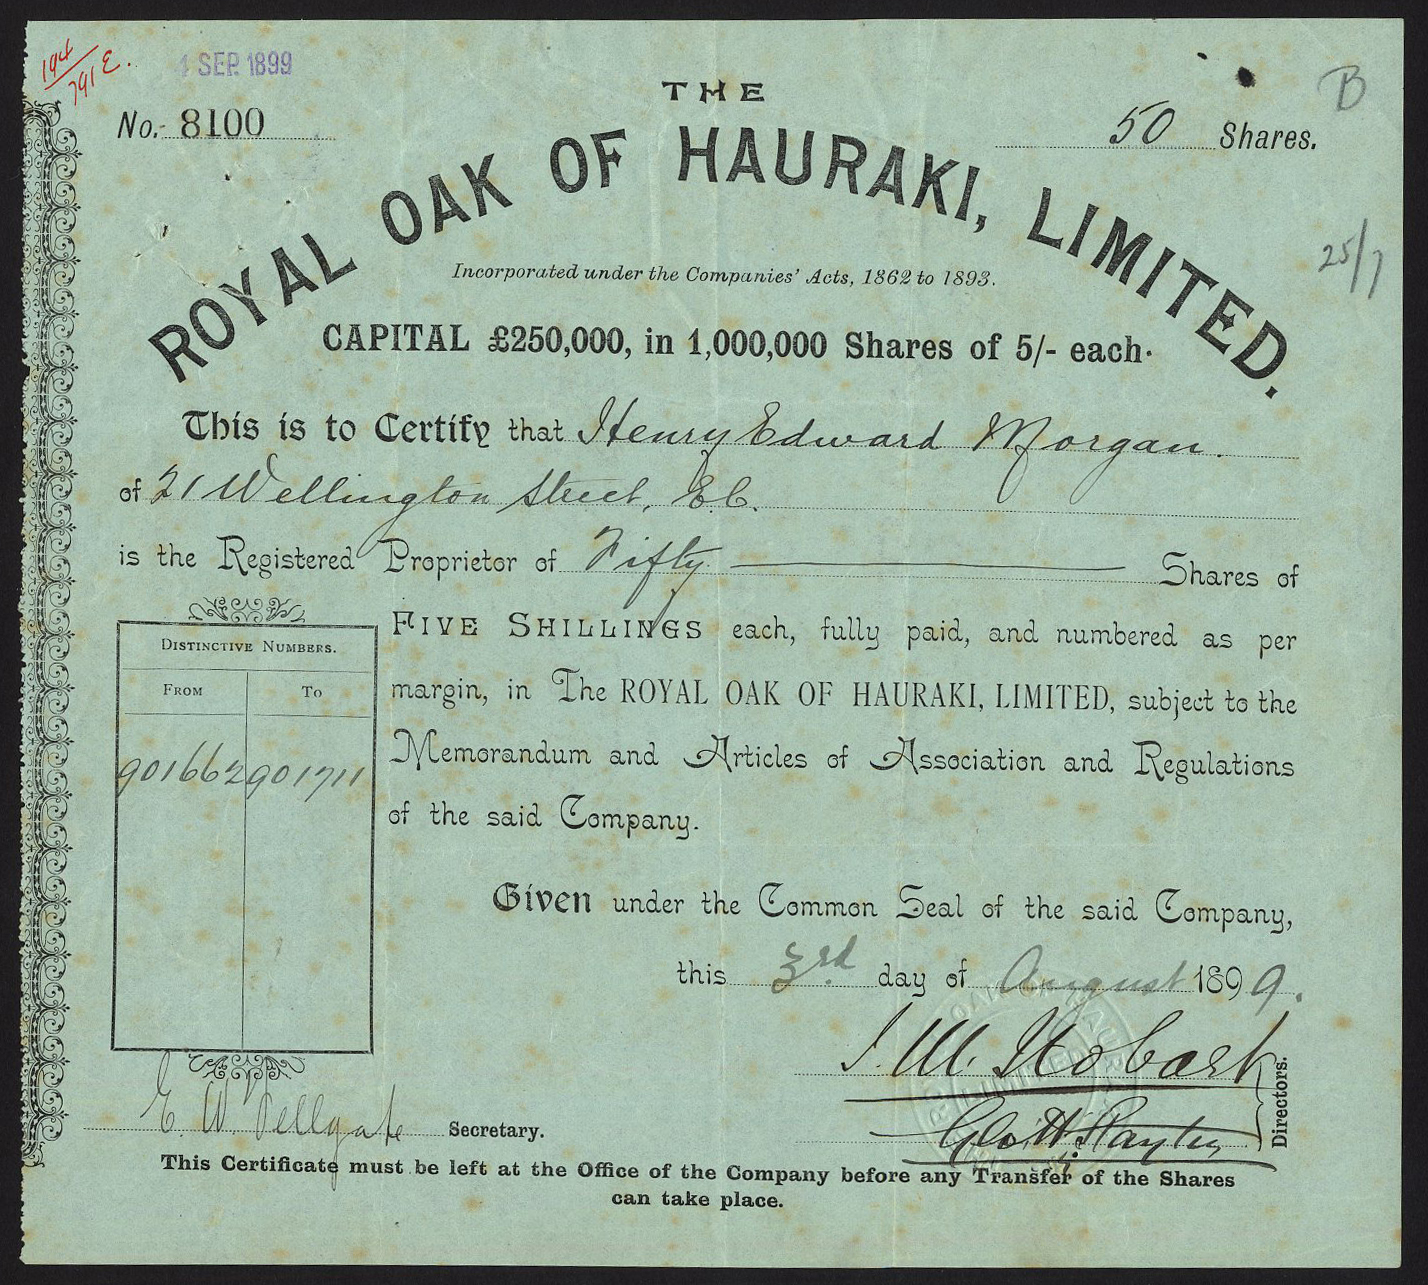 194/791E.
4 SEP. 1899
B
No. 8100
50 Shares.
THE
ROYAL OAK OF HAURAKI, LIMITED.
25/7
Incorporated under the Companies' Acts, 1862 to 1893.
CAPITAL £250,000, in 1,000,000 Shares of 5/- each.
This is to Certify that Henry Edward Morgan.
of 21 Wellington Street, E.C.
is the Registered Proprietor of Fifty Shares of
FIVE SHILLINGS each, fully paid, and numbered as per
margin, in The ROYAL OAK OF HAURAKI, LIMITED, subject to the
Memorandum and Articles of Association and Regulations
of the said Company.
DISTINCTIVE NUMBERS.
FROM TO
901662 901711
Given under the Common Seal of the said Company,
this 3rd day of August 1899.
J. W. Hobart
Geo. H.
Directors.
E. W. Fellgate Secretary.
This Certificate must be left at the Office of the Company before any Transfer of the Shares
can take place.